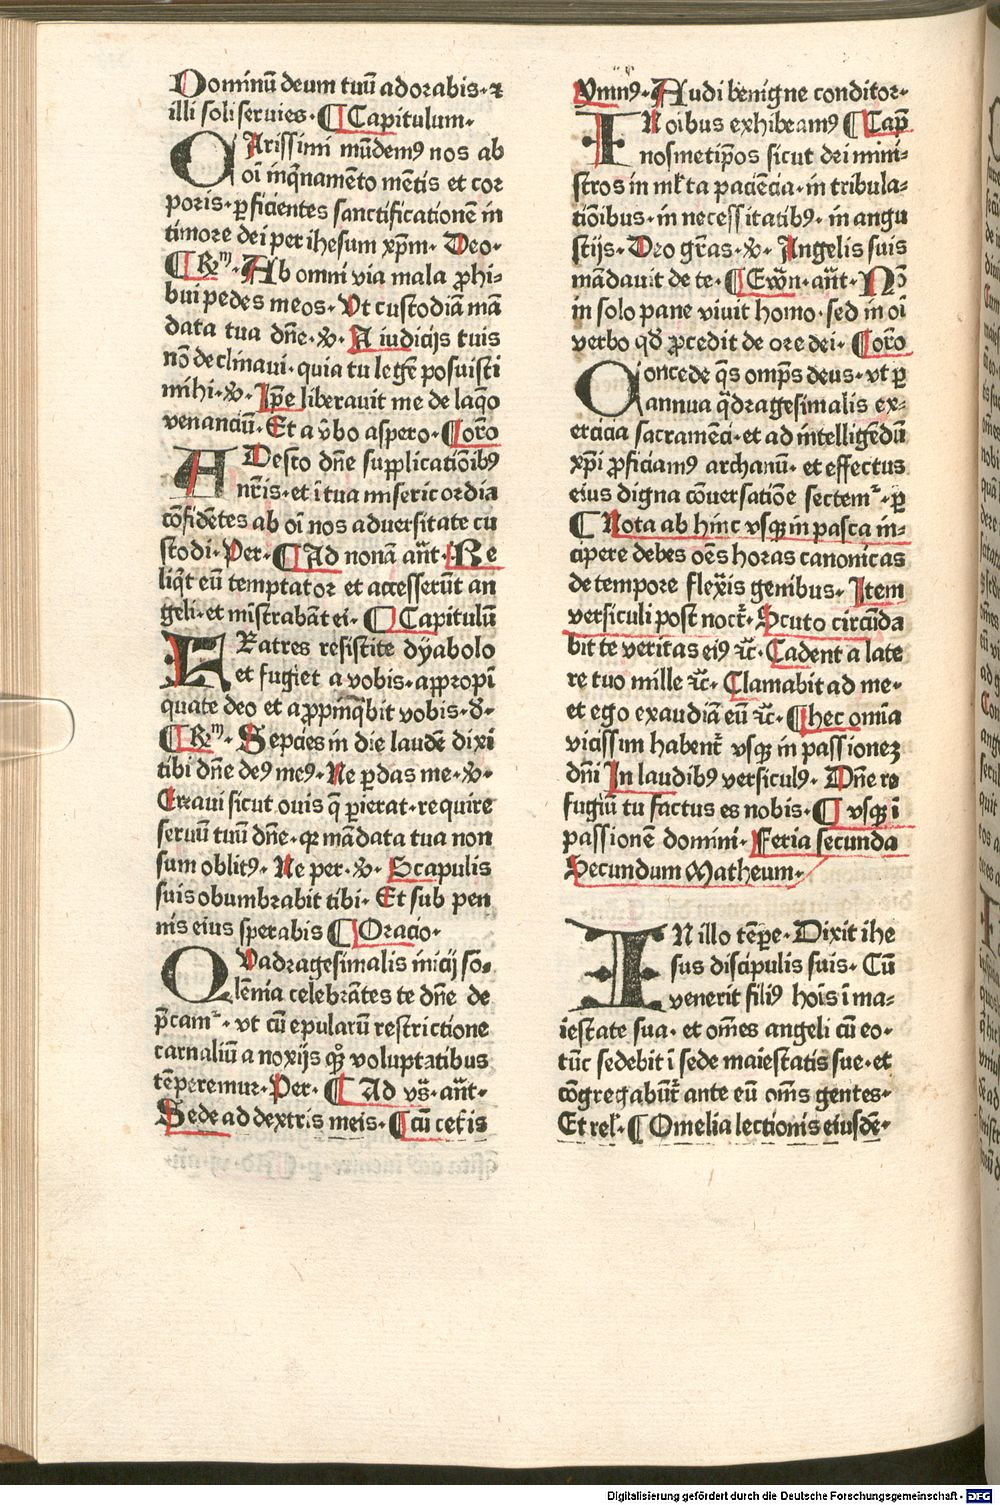 Dominū deum tuū adorabis· ⁊
illi soli seruies· ¶ Capitulum·
CArissimi mūdemꝰ nos ab
oī inq̄namēto mētis et cor
poris· ꝑficientes sanctificationē in
timore dei per ihesum xp̄m· Deo·
¶ R̄m· Ab omni via mala ꝓhi-
bui pedes meos· Vt custodiā mā
data tua dn̄e· v̄· A iudicijs tuis
nō declinaui· quia tu legē posuisti
mihi· v̄· Ip̄e liberauit me de laq̄o
venanciū· Et a v̄bo aspero· ¶ Oro
ADesto dn̄e supplicatiōibꝰ
nr̄is· et ī tua misericordia
cōfidētes ab oī nos aduersitate cu
stodi· Per· ¶ Ad nonā an̄t· Re
liqt eū temptator et accesserūt an
geli· et mīstrabāt ei· ¶ Capitulū
FRatres resistite dyabolo
et fugiet a vobis· appropī
quate deo et appīnq̄bit vobis· d·
¶ R̄m· Sepcies in die laudē dixi
tibi dn̄e deꝰ meꝰ· Ne ꝑdas me· v̄·
Erraui sicut ouis q̄ ꝑierat· require
seruū tuū dn̄e· qꝛ mādata tua non
sum oblitꝰ· Ne per· v̄· Scapulis
suis obumbrabit tibi· Et sub pen
nis eius sperabis ¶ Oracio·
QVadragesimalis inicij so-
lēnia celebrātes te dn̄e de
p̄camᷣ· vt cū epularū restrictione
carnaliū a noxijs qꝫ voluptatibus
tēperemur· Per· ¶ Ad vs̄· an̄t·
Sede ad dextris meis· ¶ cū cet̄is
Ymnꝰ· Audi benigne conditor·
IN oībus exhibeamꝰ ¶ Cap̄
nosmetip̄os sicut dei mini-
stros in ml̄ta paciēcia· in tribula-
tiōibus· in necessitatibꝰ· in angu
stijs· Deo gr̄as· v̄· Angelis suis
mādauit de te· ¶ Ewn̄· an̄t· Nō
in solo pane viuit homo· sed in oī
verbo qd̄ ꝓcedit de ore dei· ¶ Oro
COncede q̄s omp̄s deus· vt ꝑ
annua q̄dragesimalis ex-
ercicia sacramēti· et ad intelligēdū
xp̄i ꝓficiamꝰ archanū· et effectus
eius digna cōuersatiōe sectemᷣ· ꝑ
¶ Nota ab hinc vsqꝫ in pasca in-
cipere debes oēs horas canonicas
de tempore flexis genibus· Item
versiculi post noct̄· Scuto circūda
bit te veritas eiꝰ ⁊c̄· Cadent a late
re tuo mille ⁊c̄· Clamabit ad me·
et ego exaudiā eū ⁊c̄· ¶ hec omīa
vicissim habent̄ vsqꝫ in passionez
dn̄i In laudibꝰ versiculꝰ· Dn̄e re
fugiū tu factus es nobis· ¶ vsqꝫ ī
passionē domini· Feria secunda
Secundum Matheum·
IN illo tēꝑe· Dixit ihe
sus discipulis suis· Cū
venerit filiꝰ hoīs ī ma-
iestate sua· et om̄es angeli cū eo·
tūc sedebit ī sede maiestatis sue· et
cōgregabūt̄ ante eū om̄s gentes·
Et rel̄· ¶ Omelia lectionis eiusdē·
Digitalisierung gefördert durch die Deutsche Forschungsgemeinschaft - DFG